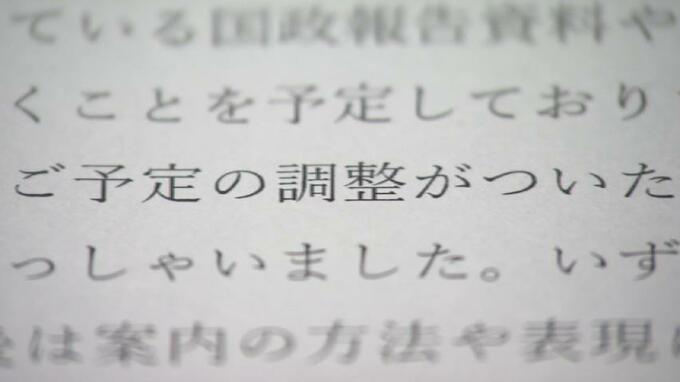 ている国政報告資料や
くことを予定しており
ご予定の調整がついた
っしゃいました。いず
は案内の方法や表現